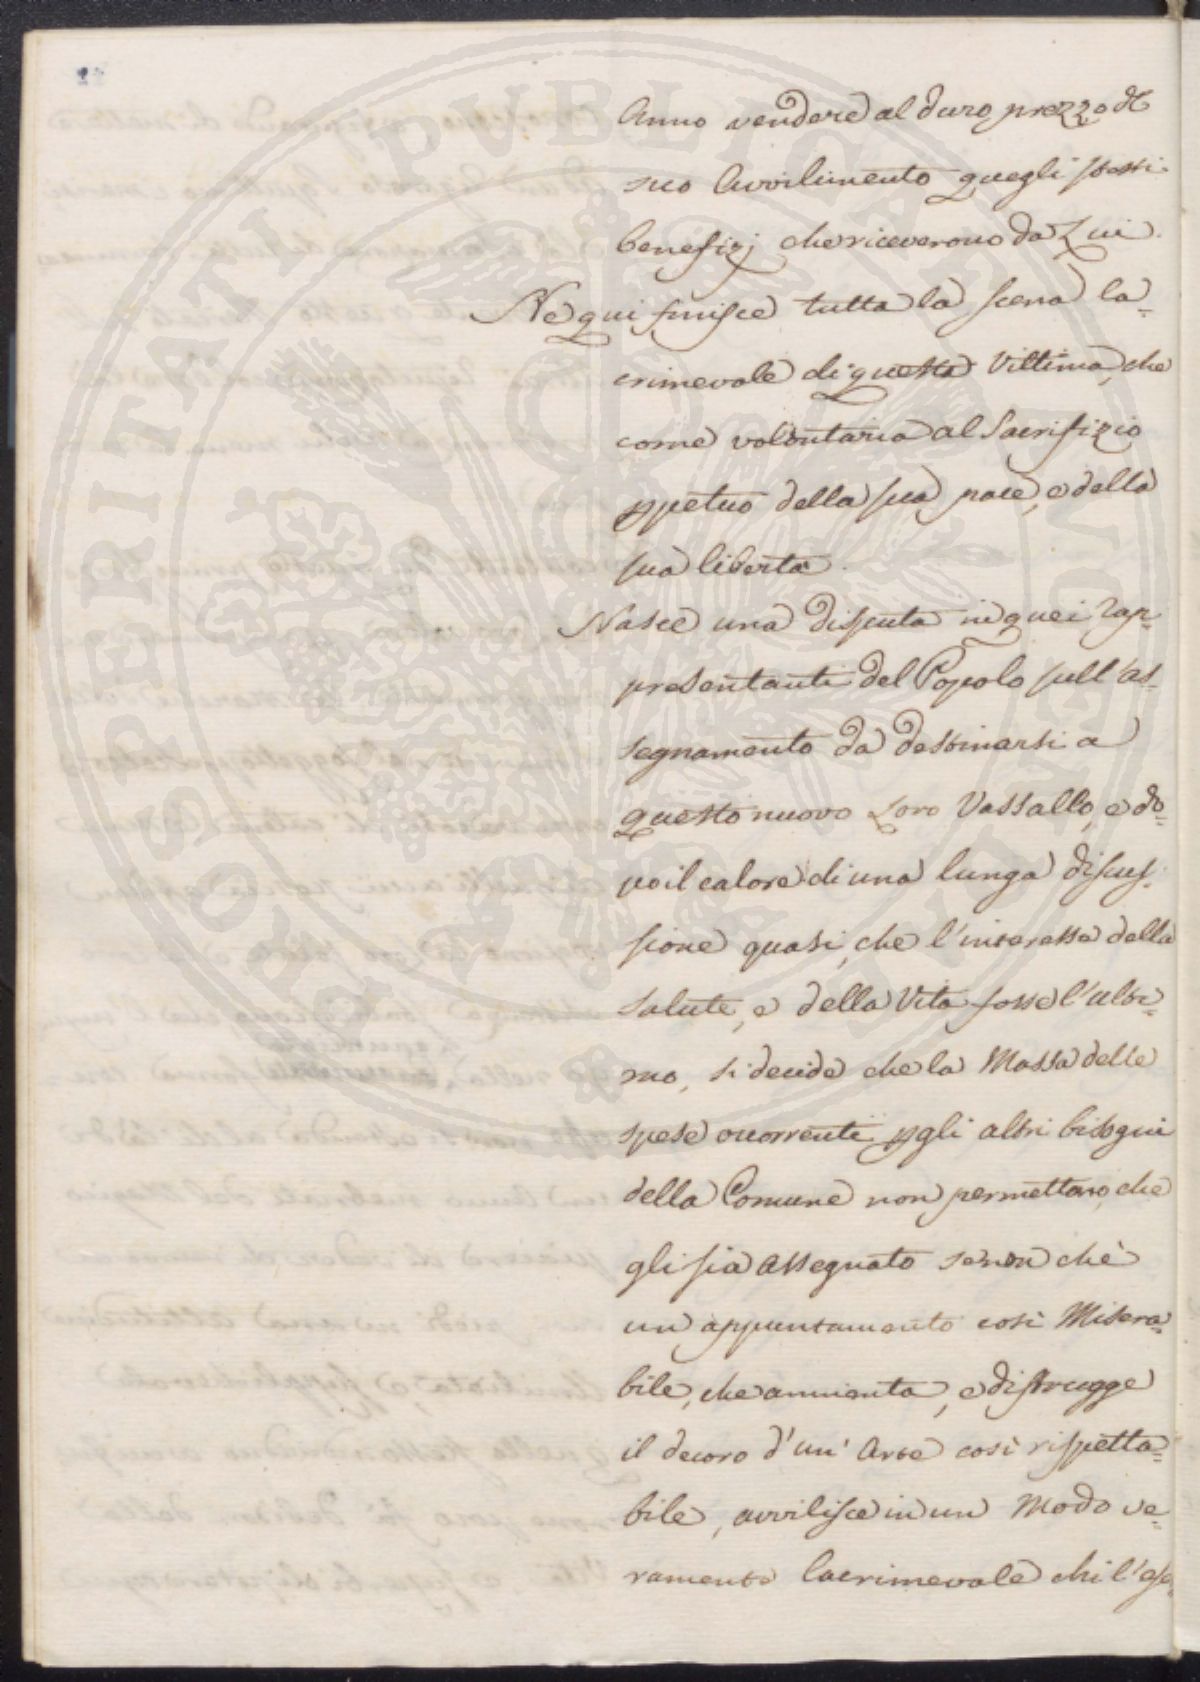 Anno vendere al duro prezzo del
suo Avvilimento quegli stessi
benefizj che riceverono da Lui.
Ne qui finisce tutta la scena la=
crimevole di questa Vittima, che
come volontaria al Sacrifizio
ppetuo della sua pace, e della
sua libertà.
Nasce una disputa in quei Rap=
presentanti del Popolo sull'as=
segnamento da destinarsi a
questo nuovo Loro Vassallo, e do=
po il calore di una lunga discus=
sione quasi, che l'interesse della
Salute, e della Vita fosse l'ulti=
mo, si decide che la Massa delle
spese ocorrenti pgli altri bisogni
della Comune non permettano, che
gli sia assegnato senon chè
un appuntamento così Misera=
bile, che annienta, e distrugge
il decoro d'un' Arte così rispetta=
bile, avvilisce in un Modo ve=
ramente lacrimevole chi l'ese=
PROSPERITATI PUBLICAE AUGENDAE